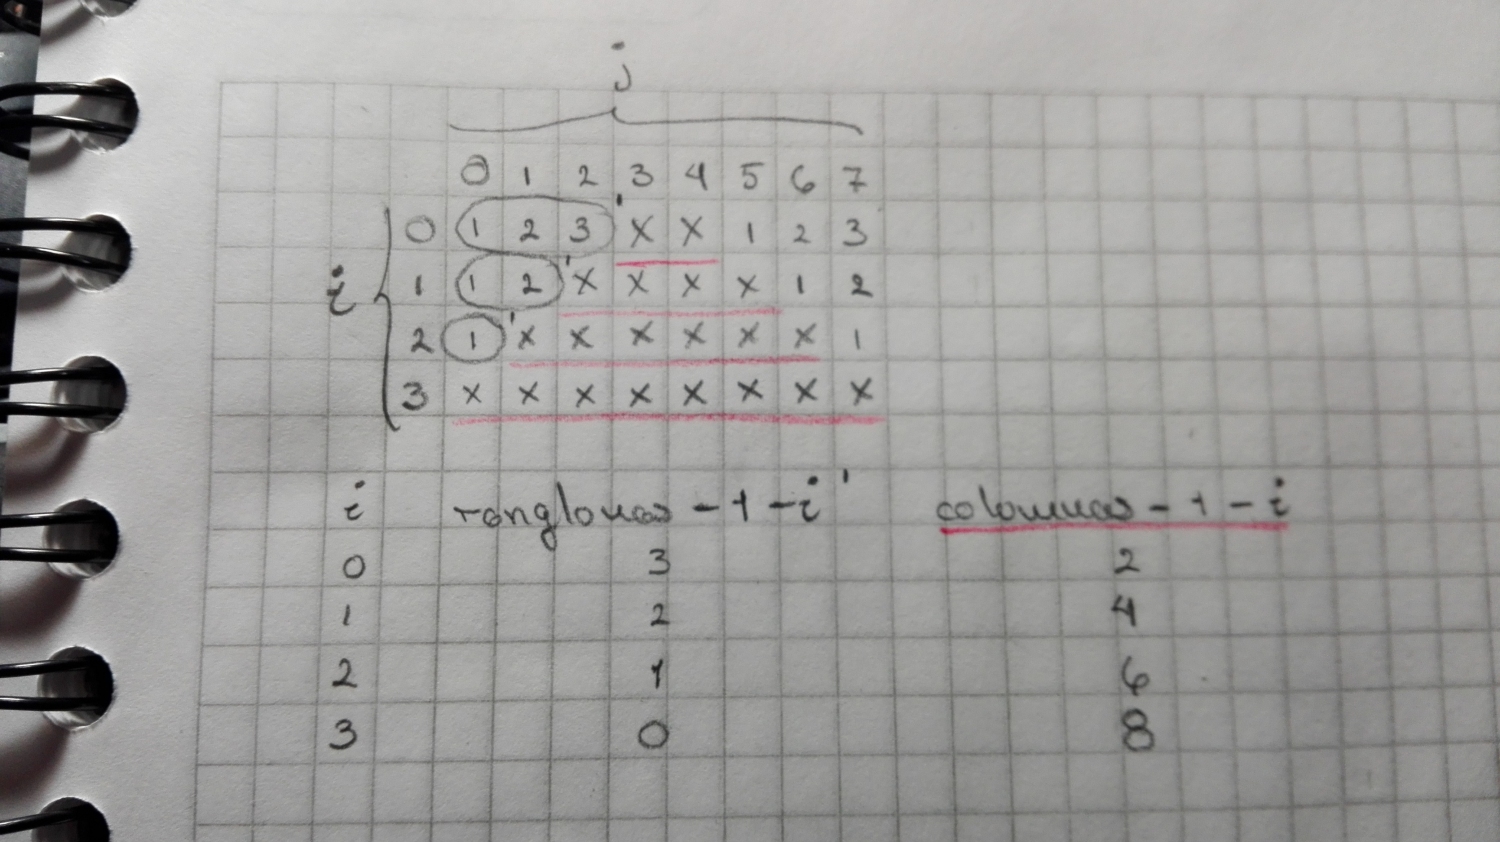 j
0 1 2 3 4 5 6 7
0 1 2 3 ' X X 1 2 3
i 1 1 2 ' X X X X 1 2
2 1 ' X X X X X X 1
3 X X X X X X X X
i renglones - 1 - i ' columnas - 1 - i
0 3 2
1 2 4
2 1 6
3 0 8